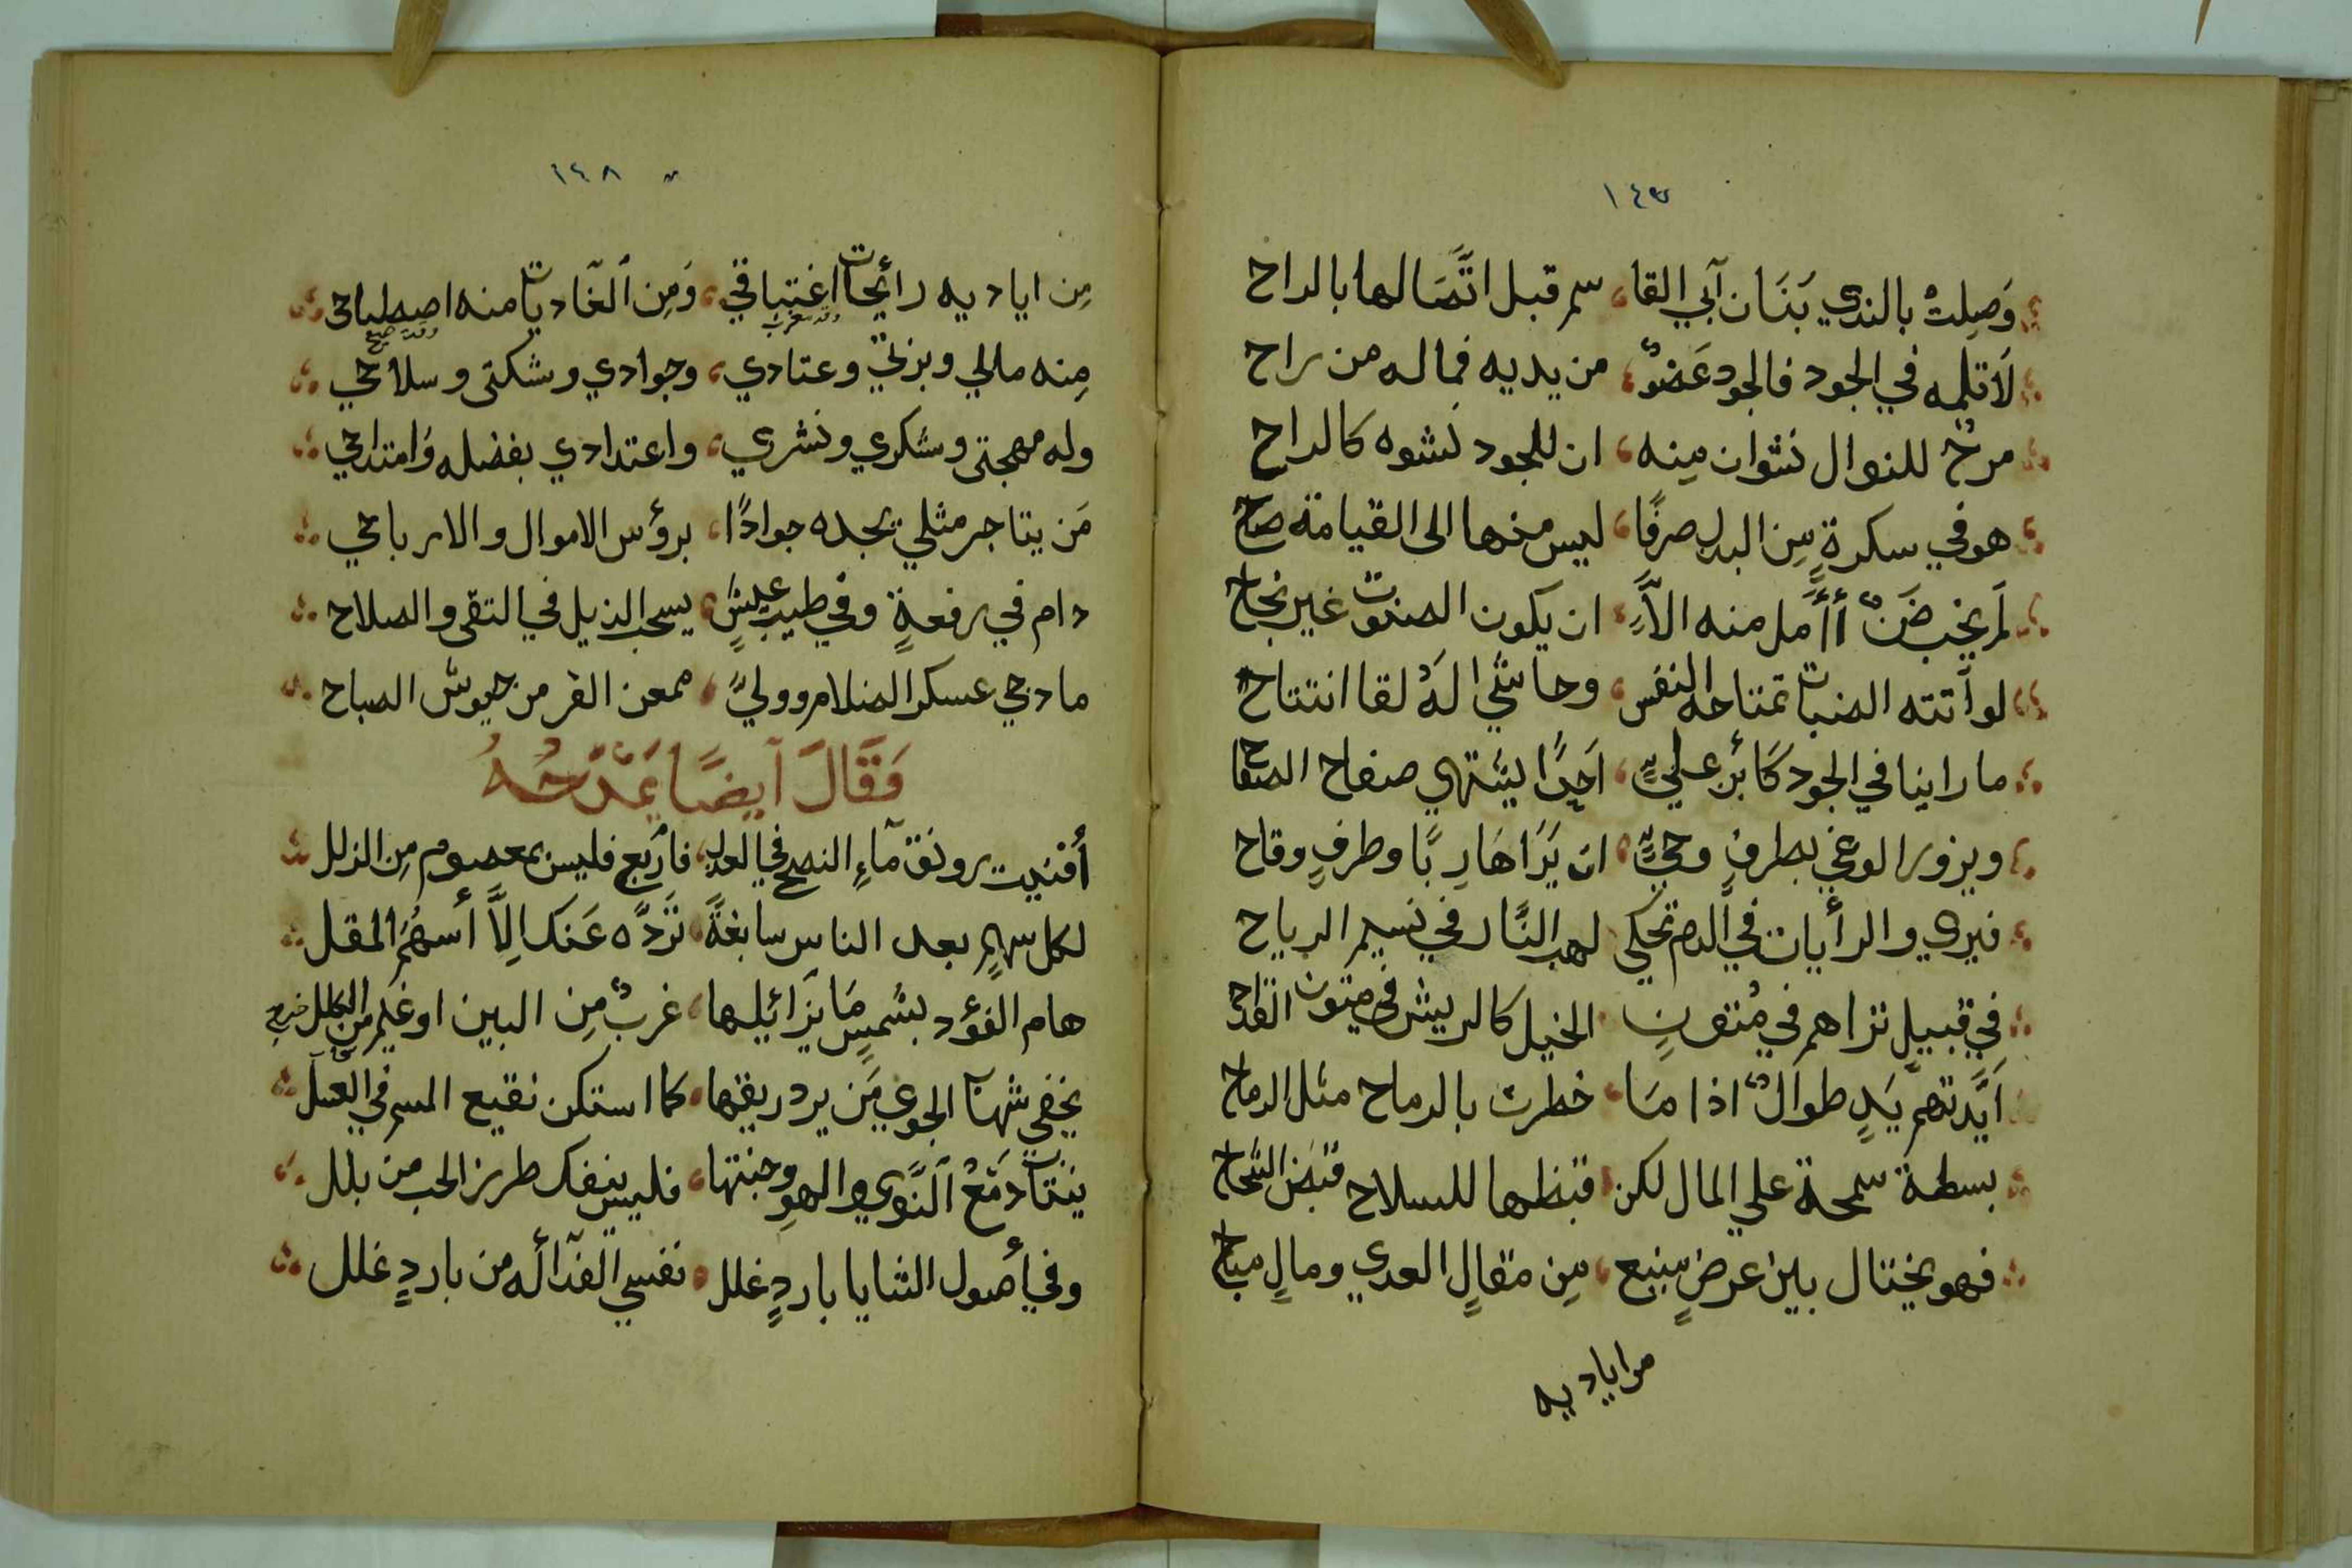 ١٤٧
وَصِلتْ بالندي بَنَان آبي القا سم قبل اتَّصَالها بالراح
لَاتلمه في الجود فالجود عَضوٌ من يديه فماله من راح
مرحٌ للنوال نشوان مِنه ان للجود نشوه كالراح
هو في سكرةٍ مِن البدل صرفًا ليس منها الى القيامة صاح
لَم يخب ضَنٌ أأمل منه الاَّ ان يكون الضنون غير نجاح
لو آتته الضبات تمتاحه النفس وحاشي لَهُ لقا انتتاح
ما راينا في الجود كَابْن عليٍّ اَحدًا ليئتهي صفاح الصفاح
ويزور الوغي بطرفٍ وحيٍّ ان يَرَاهَا رِبًا وطرفٍ وقاح
فيري والرأيات في الدم تحكي لهب النَّار في نسيم الرياح
في قبيلٍ تراهم في مُتونٍ الخيل كالريش في متون القداح
اَيَّدتهمَّ يَدٍ طوالٌ اذا مَا خطرت بالرماح مثل الرماح
بسطة سمحة علي المال لكن قبظها للسلاح قبَض الشحاح
فهو يختال بين عرضٍ منيع مِن مقالٍ العدي ومالٍ مباح
من اياديه
١٤٨
مِن اياديه رائحات اغتباقي وَمِن الغاديات منه اصطباحي
مِنه مالي وبزتي وعتادي وجوادي وشكتي وسلاحي
وله مهجتي وشكري ونشري واعتدادي بفضله وَامتداحي
مَن يتاجر مثلي يجده جوادًا برؤس الاموال والارباحي
دام في رفعةٍ وفي طيب عيشٍ يسحب الذيل في التقى والصلاح
ما دجي عسكر الضلام ووليَّ ممعن الفر من جيوش الصباح
وَقَالَ آيضًا يَمْدَحُهُ
أفنيت رونق مآءِ النصح في العدل فاربع فليس بمعصوم مِن الزلل
لكل سهمٍ بعد الناس سابغةً تَرَدَّه عَنك اِلاَّ أسهُم المقل
هام الفؤد بشمسٍ مَا يزائيلها غربٌ مِن البين او غيم من الكلل
يخفي شهنآ الجوي مَن يرد ريقها كما استكن نقيع السم في العسل
ينتات دَمَعْ النَّوي والهوِ وجنتها فليس ينفك طرز الحب من بلل
وفي أصول الثنايا باردٍ غلل نفسي الفدآ لَه من باردٍ غلل